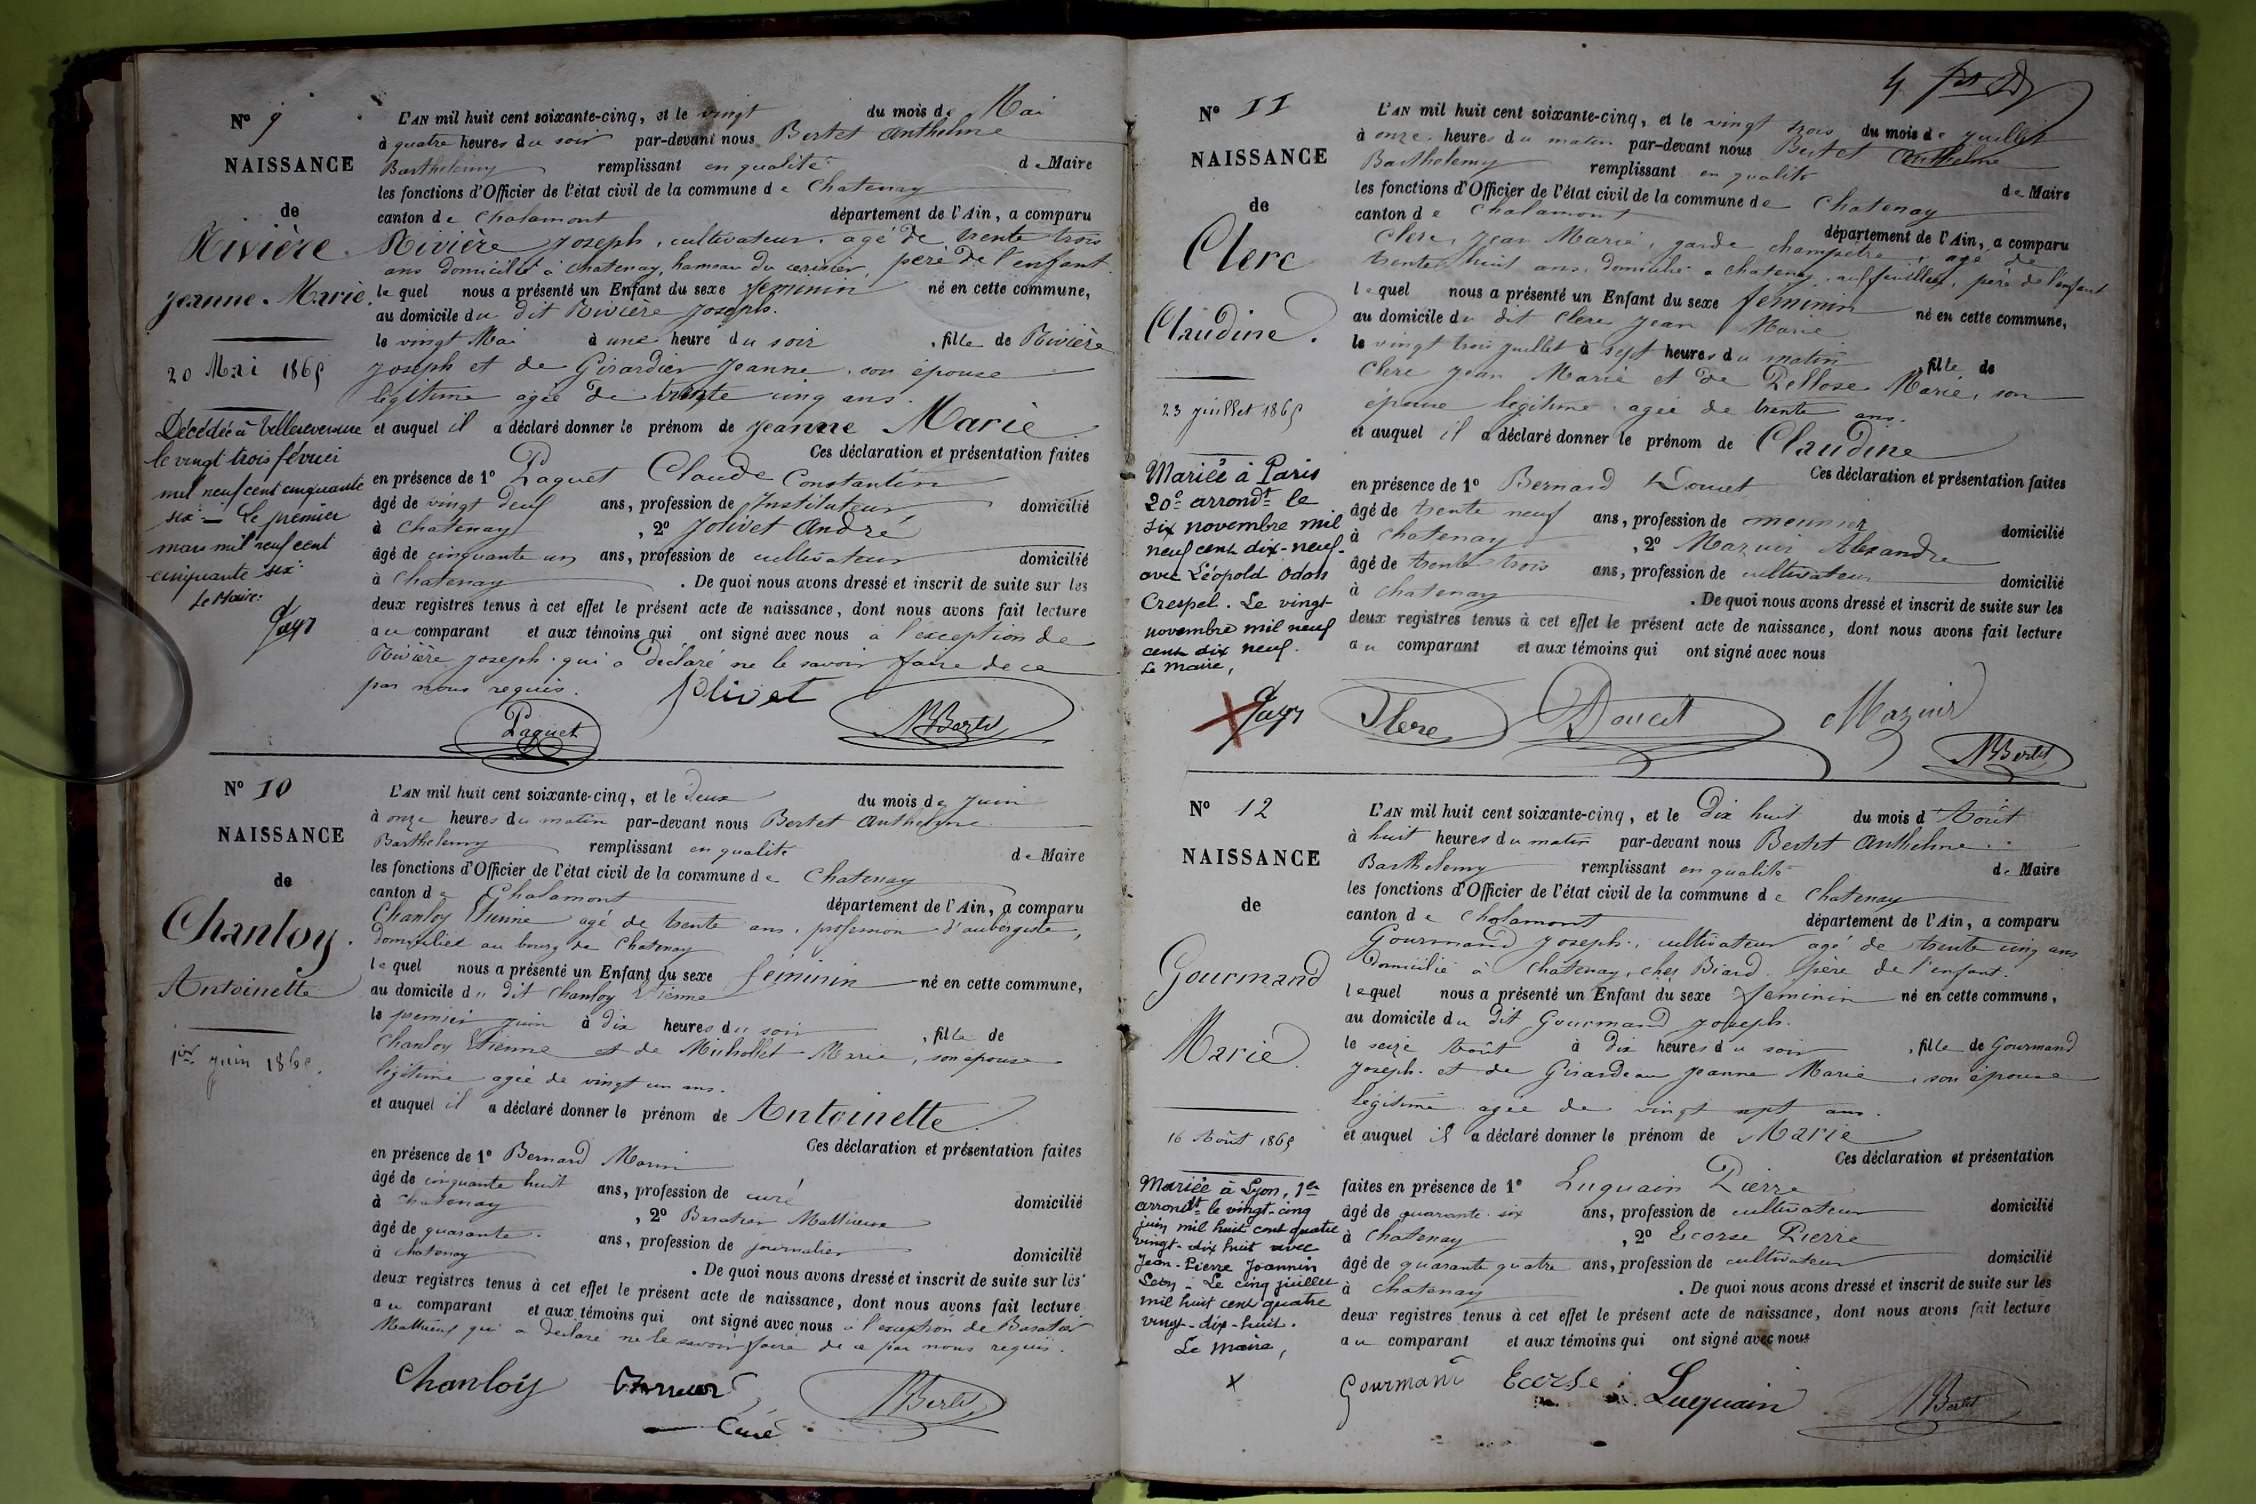 N° 9
NAISSANCE
de
Rivière
Jeanne-Marie.
20 Mai 1865
Décédée à Villereversure
le vingt trois février
mil neuf cent cinquante
six. — Le premier
mars mil neuf cent
cinquante six.
Le Maire:
L'AN mil huit cent soixante-cinq, et le vingt du mois de Mai
à quatre heures du soir par-devant nous Bertet Anthelme
Barthélemy remplissant en qualité de Maire
les fonctions d'Officier de l'état civil de la commune de Chatenay
canton de Chalamont département de l'Ain, a comparu
Rivière Joseph, cultivateur, agé de trente trois
ans domicilié à Chatenay, hameau du cerisier, père de l'enfant.
lequel nous a présenté un Enfant du sexe féminin né en cette commune,
au domicile du dit Rivière Joseph.
le vingt Mai à une heure du soir, fille de Rivière
Joseph et de Girardier Jeanne, son épouse
légitime agée de trente cinq ans.
et auquel il a déclaré donner le prénom de Jeanne Marie
Ces déclaration et présentation faites
en présence de 1° Paquet Claude Constantin
âgé de vingt deux ans, profession de Instituteur domicilié
à Chatenay, 2° Jolivet André
âgé de cinquante un ans, profession de cultivateur domicilié
à Chatenay. De quoi nous avons dressé et inscrit de suite sur les
deux registres tenus à cet effet le présent acte de naissance, dont nous avons fait lecture
au comparant et aux témoins qui ont signé avec nous à l'exception de
Rivière Joseph qui a déclaré ne le savoir faire de ce
par nous requis.
Jolivet
Paquet
Bertet
N° 10
NAISSANCE
de
Chanloy.
Antoinette
1er Juin 1865.
L'AN mil huit cent soixante-cinq, et le deux du mois de Juin
à onze heures du matin par-devant nous Bertet Anthelme
Barthelemy remplissant en qualité de Maire
les fonctions d'Officier de l'état civil de la commune de Chatenay
canton de Chalamont département de l'Ain, a comparu
Chanloy Etienne agé de trente ans, profession d'aubergiste,
domicilié au bourg de Chatenay
lequel nous a présenté un Enfant du sexe féminin né en cette commune,
au domicile du dit Chanloy Etienne
le premier juin à dix heures du soir, fille de
Chanloy Etienne et de Michollet Marie, son épouse
légitime agée de vingt un ans.
et auquel il a déclaré donner le prénom de Antoinette.
Ces déclaration et présentation faites
en présence de 1° Bernard Marin
âgé de cinquante huit ans, profession de curé domicilié
à Chatenay, 2° Baratier Mathieu
âgé de quarante. ans, profession de journalier domicilié
à Chatenay. De quoi nous avons dressé et inscrit de suite sur les
deux registres tenus à cet effet le présent acte de naissance, dont nous avons fait lecture
au comparant et aux témoins qui ont signé avec nous à l'exception de Baratier
Mathieu qui a déclaré ne le savoir faire de ce par nous requis.
Chanloy
Curé
Bertet
4
N° 11
NAISSANCE
de
Clerc
Claudine.
23 juillet 1865
Mariée à Paris
20e arrondt le
six novembre mil
neuf cent dix-neuf
avec Léopold Odon
Crespel. Le vingt
novembre mil neuf
cent dix neuf.
Le Maire,
L'AN mil huit cent soixante-cinq, et le vingt trois du mois de juillet
à onze heures du matin par-devant nous Bertet Anthelme
Barthelemy remplissant en qualité de Maire
les fonctions d'Officier de l'état civil de la commune de Chatenay
canton de Chalamont département de l'Ain, a comparu
Clerc Jean Marie, garde champêtre, agé de
trente huit ans, domicilié à Chatenay, père de l'enfant
lequel nous a présenté un Enfant du sexe féminin né en cette commune,
au domicile du dit Clerc Jean Marie
le vingt trois juillet à sept heures du matin, fille de
Clerc Jean Marie et de Pellose Marie, son
épouse légitime agée de trente ans.
et auquel il a déclaré donner le prénom de Claudine
Ces déclaration et présentation faites
en présence de 1° Bernard Doucet
âgé de trente neuf ans, profession de meunier domicilié
à Chatenay, 2° Mazuir Alexandre
âgé de trente trois ans, profession de cultivateur domicilié
à Chatenay. De quoi nous avons dressé et inscrit de suite sur les
deux registres tenus à cet effet le présent acte de naissance, dont nous avons fait lecture
au comparant et aux témoins qui ont signé avec nous
Clerc
Doucet
Mazuir
Bertet
N° 12
NAISSANCE
de
Gourmand
Marie.
16 Août 1865
Mariée à Lyon, 1er
arrondt le vingt-cinq
juin mil huit cent quatre
vingt-dix huit avec
Jean-Pierre Joannin
Le cinq juillet
mil huit cent quatre
vingt-dix-huit.
Le Maire,
L'AN mil huit cent soixante-cinq, et le dix huit du mois d'Août
à huit heures du matin par-devant nous Bertet Anthelme
Barthelemy remplissant en qualité de Maire
les fonctions d'Officier de l'état civil de la commune de Chatenay
canton de Chalamont département de l'Ain, a comparu
Gourmand Joseph, cultivateur agé de trente cinq ans
domicilié à Chatenay, chez Biard, père de l'enfant.
lequel nous a présenté un Enfant du sexe féminin né en cette commune,
au domicile du dit Gourmand Joseph.
le seize Août à dix heures du soir, fille de Gourmand
Joseph et de Girardeau Jeanne Marie, son épouse
légitime agée de vingt sept ans.
et auquel il a déclaré donner le prénom de Marie
Ces déclaration et présentation
faites en présence de 1° Luquain Pierre
âgé de quarante six ans, profession de cultivateur domicilié
à Chatenay, 2° Ecorse Pierre
âgé de quarante quatre ans, profession de cultivateur domicilié
à Chatenay. De quoi nous avons dressé et inscrit de suite sur les
deux registres tenus à cet effet le présent acte de naissance, dont nous avons fait lecture
au comparant et aux témoins qui ont signé avec nous
Gourmand
Ecorse
Luquain
Bertet